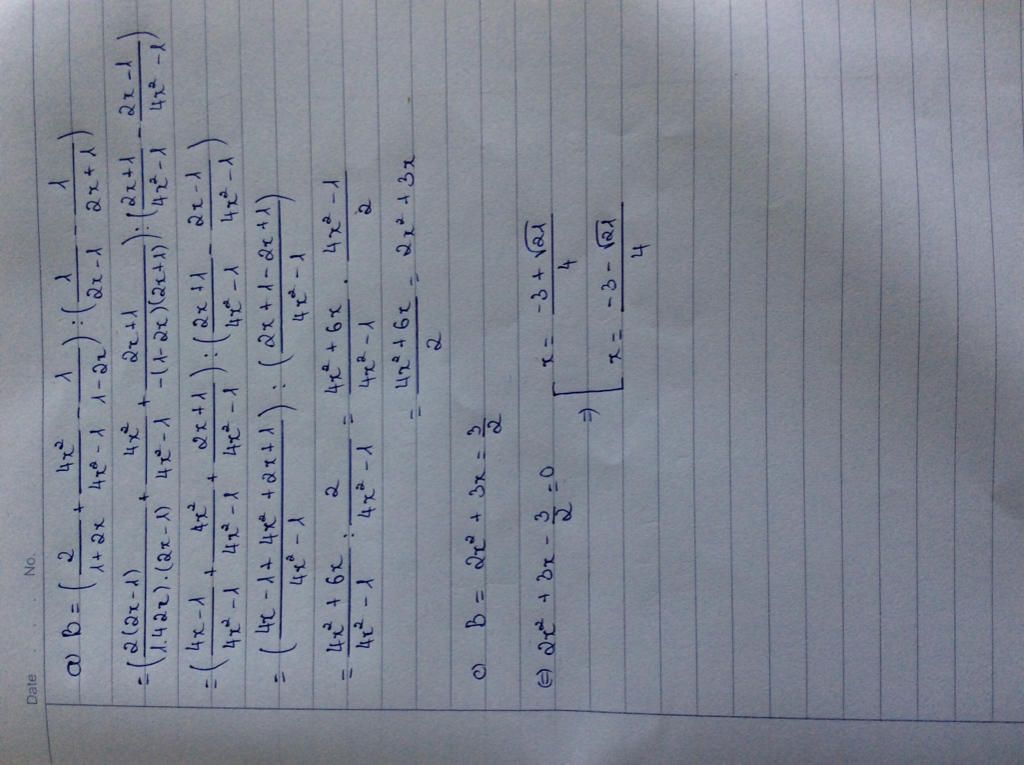 Date No.
a) B = (2/(1+2x) + 4x²/(4x²-1) - 1/(1-2x)) : (1/(2x-1) - 1/(2x+1))
= (2(2x-1)/(1.42x).(2x-1) + 4x²/(4x²-1) + (2x+1)/(-(1-2x)(2x+1))) : ((2x+1)/(4x²-1) - (2x-1)/(4x²-1))
= ((4x-1)/(4x²-1) + 4x²/(4x²-1) + (2x+1)/(4x²-1)) : ((2x+1)/(4x²-1) - (2x-1)/(4x²-1))
= ((4x-1+4x²+2x+1)/(4x²-1)) : ((2x+1-2x+1)/(4x²-1))
= (4x²+6x)/(4x²-1) : 2/(4x²-1) = (4x²+6x)/(4x²-1) . (4x²-1)/2
= (4x²+6x)/2 = 2x²+3x
c) B = 2x² + 3x = 3/2
(=) 2x² + 3x - 3/2 = 0
=) [ x = (-3+√21)/4
x = (-3-√21)/4